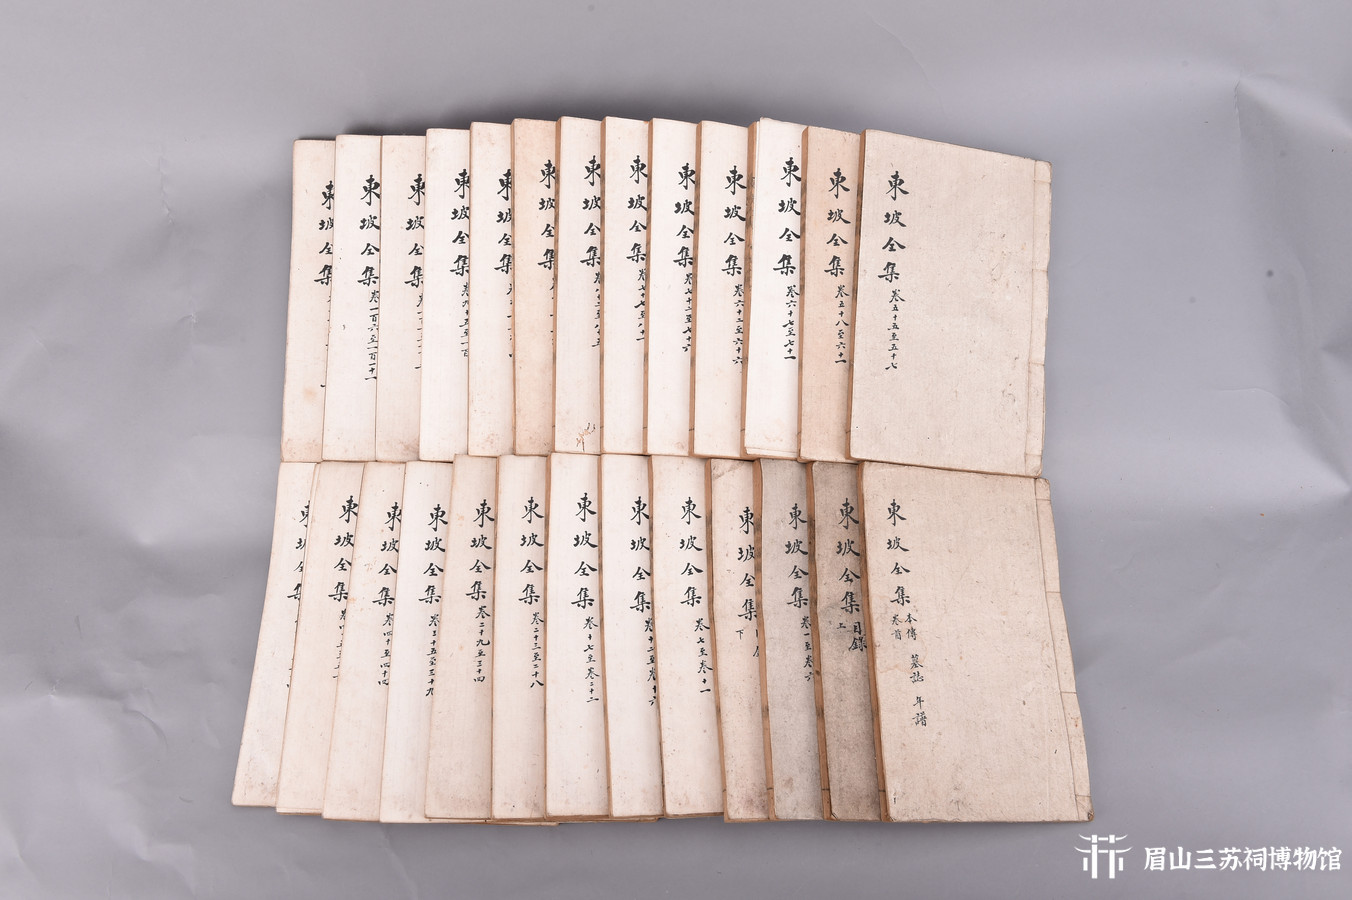 東坡全集卷五十五至五十七
東坡全集卷五十八至六十一
東坡全集卷六十七至七十一
東坡全集卷六十二至六十六
東坡全集卷七十二至七十六
東坡全集卷七十七至八十一
東坡全集卷八十二至八十五
東坡全集
東坡全集
東坡全集卷九十五至一百
東坡全集
東坡全集卷一百六至一百十一
東坡全集
東坡全集卷首本傳 墓誌 年譜
東坡全集目錄上
東坡全集卷一至卷六
東坡全集下
東坡全集卷七至卷十一
東坡全集卷十二至卷十六
東坡全集卷十七至卷二十二
東坡全集卷二十三至二十八
東坡全集卷二十九至三十四
東坡全集卷三十五至三十九
東坡全集卷四十至四十四
東坡全集
東坡全集
眉山三苏祠博物馆